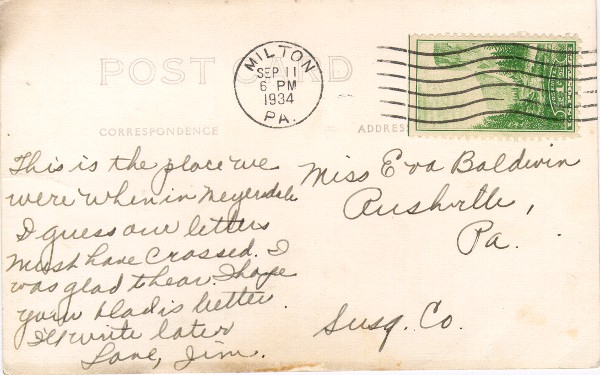 POST CARD
MILTON
SEP 11
6 PM
1934
PA.
CORRESPONDENCE
ADDRESS
This is the place we
were when in Meyersdale
I guess our letters
must have crossed. I
was glad to hear. I hope
your Dad is better.
I'll write later
Love, Jim.
Miss Eva Baldwin
Rushville,
Pa.
Susq. Co.